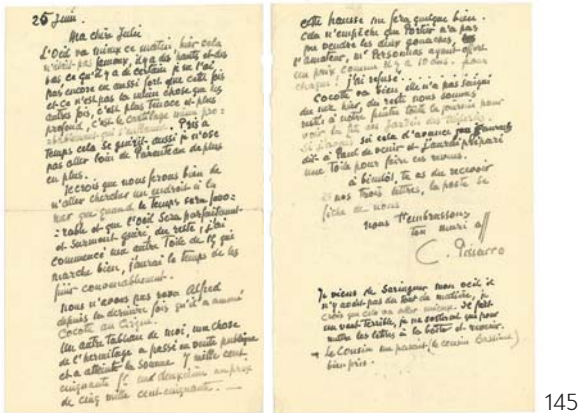 25 Juin.
Ma chère Julie
L'Oeil va mieux ce matin, hier cela
n'était pas fameux, il y a des hauts et des
bas ce qu'il y a de certain je ne l'ai
pas encore eu aussi fort que cette fois
et ce n'est pas la même chose que les
autres fois, c'est plus tenace et plus
profond, c'est le cartilage
Pris à
temps cela se guérit aussi je n'ose
pas aller loin de Parenteau de plus
en plus.
Je crois que nous ferons bien de
n'aller chercher un endroit à la
mer que quand le temps sera favo=
=rable et que l'Oeil sera parfaitement
et surement guéri, du reste j'ai
commencé une autre Toile de 15 qui
marche bien, j'aurai le temps de les
finir convenablement.
Nous n'avons pas revu Alfred
depuis la dernière fois qu'il a amené
Cocotte au Cirque.
Un autre Tableau de moi, une chose
de l'hermitage a passé en vente publique
et a atteint la somme 7 mille cent
cinquante f. un deuxième au prix
de cinq mille cent-cinquante.
cette hausse me fera quelque bien.
Cela n'empêche que Portier n'a pas
pu vendre les deux gouaches,
l'amateur, Mr Personnas ayant offert
un prix comme il y a 10 ans. pour
chaque! j'ai refusé.
Cocotte va bien, elle n'a pas saigné
du nez hier, du reste nous sommes
restés à notre fenêtre toute la journée pour
voir la fête des jardins des Tuileries.
Si j'avais su cela d'avance j'aurais
dit à Paul de venir et j'aurais préparé
une Toile pour faire ces revues.
à bientôt, tu as du recevoir
nos trois lettres, la poste se
fiche de nous
nous t'embrassons
ton mari aff
C. Pissarro
Je viens de seringuer mon oeil il
n'y avait pas du tout de matière, je
crois que cela va aller mieux. Il fait
un vent terrible, je ne sortirai que pour
mettre les lettres à la boîte et revenir.
Le Cousin me paraît (le cousin Bassine)
bien pris.
145